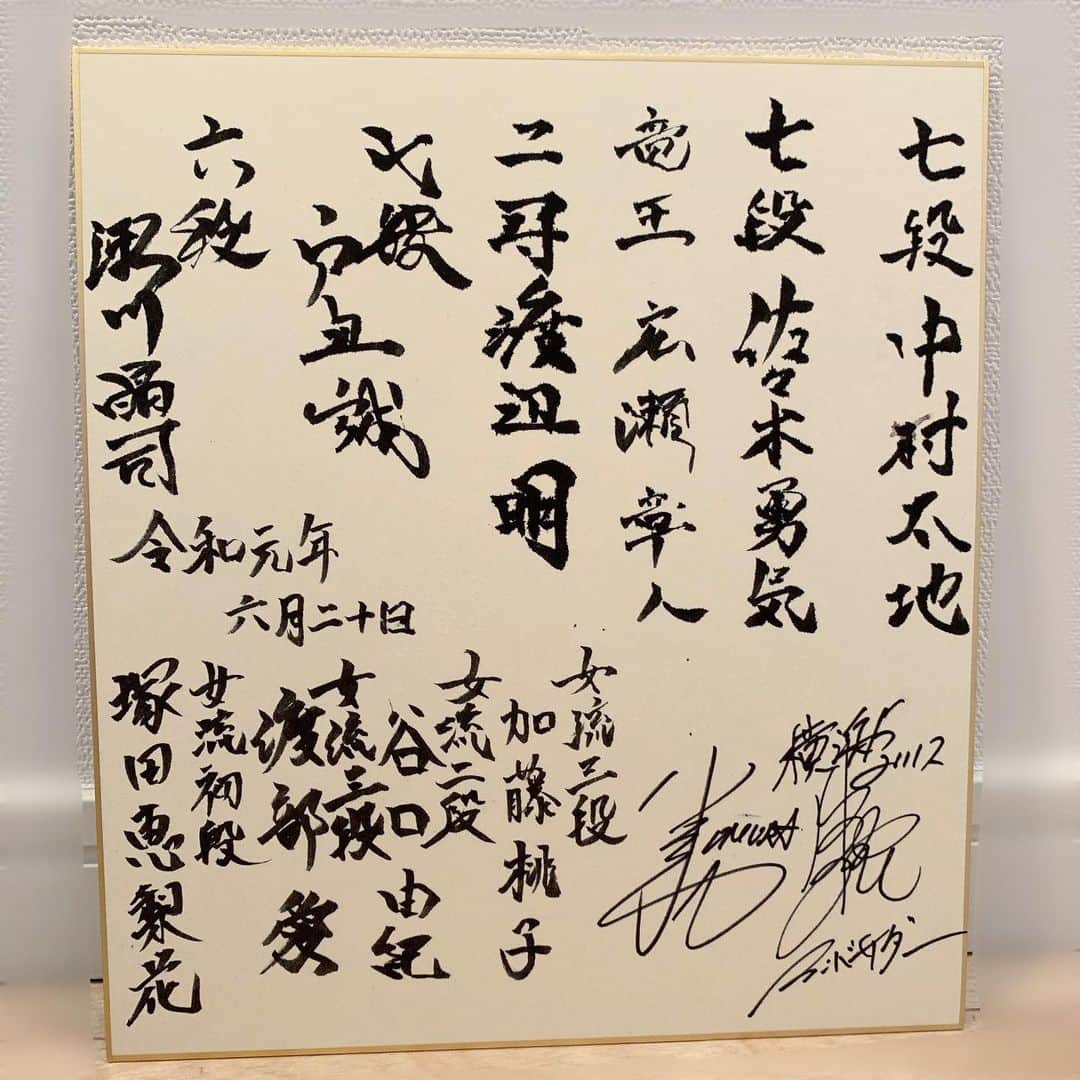 七段 中村太地
七段 佐々木勇気
竜王 広瀬章人
二冠 渡辺明
七段
戸辺誠
六段
瀬川晶司
令和元年
六月二十日
女流三段
加藤桃子
女流二段
谷口由紀
女流三段
渡部愛
女流初段
塚田恵梨花